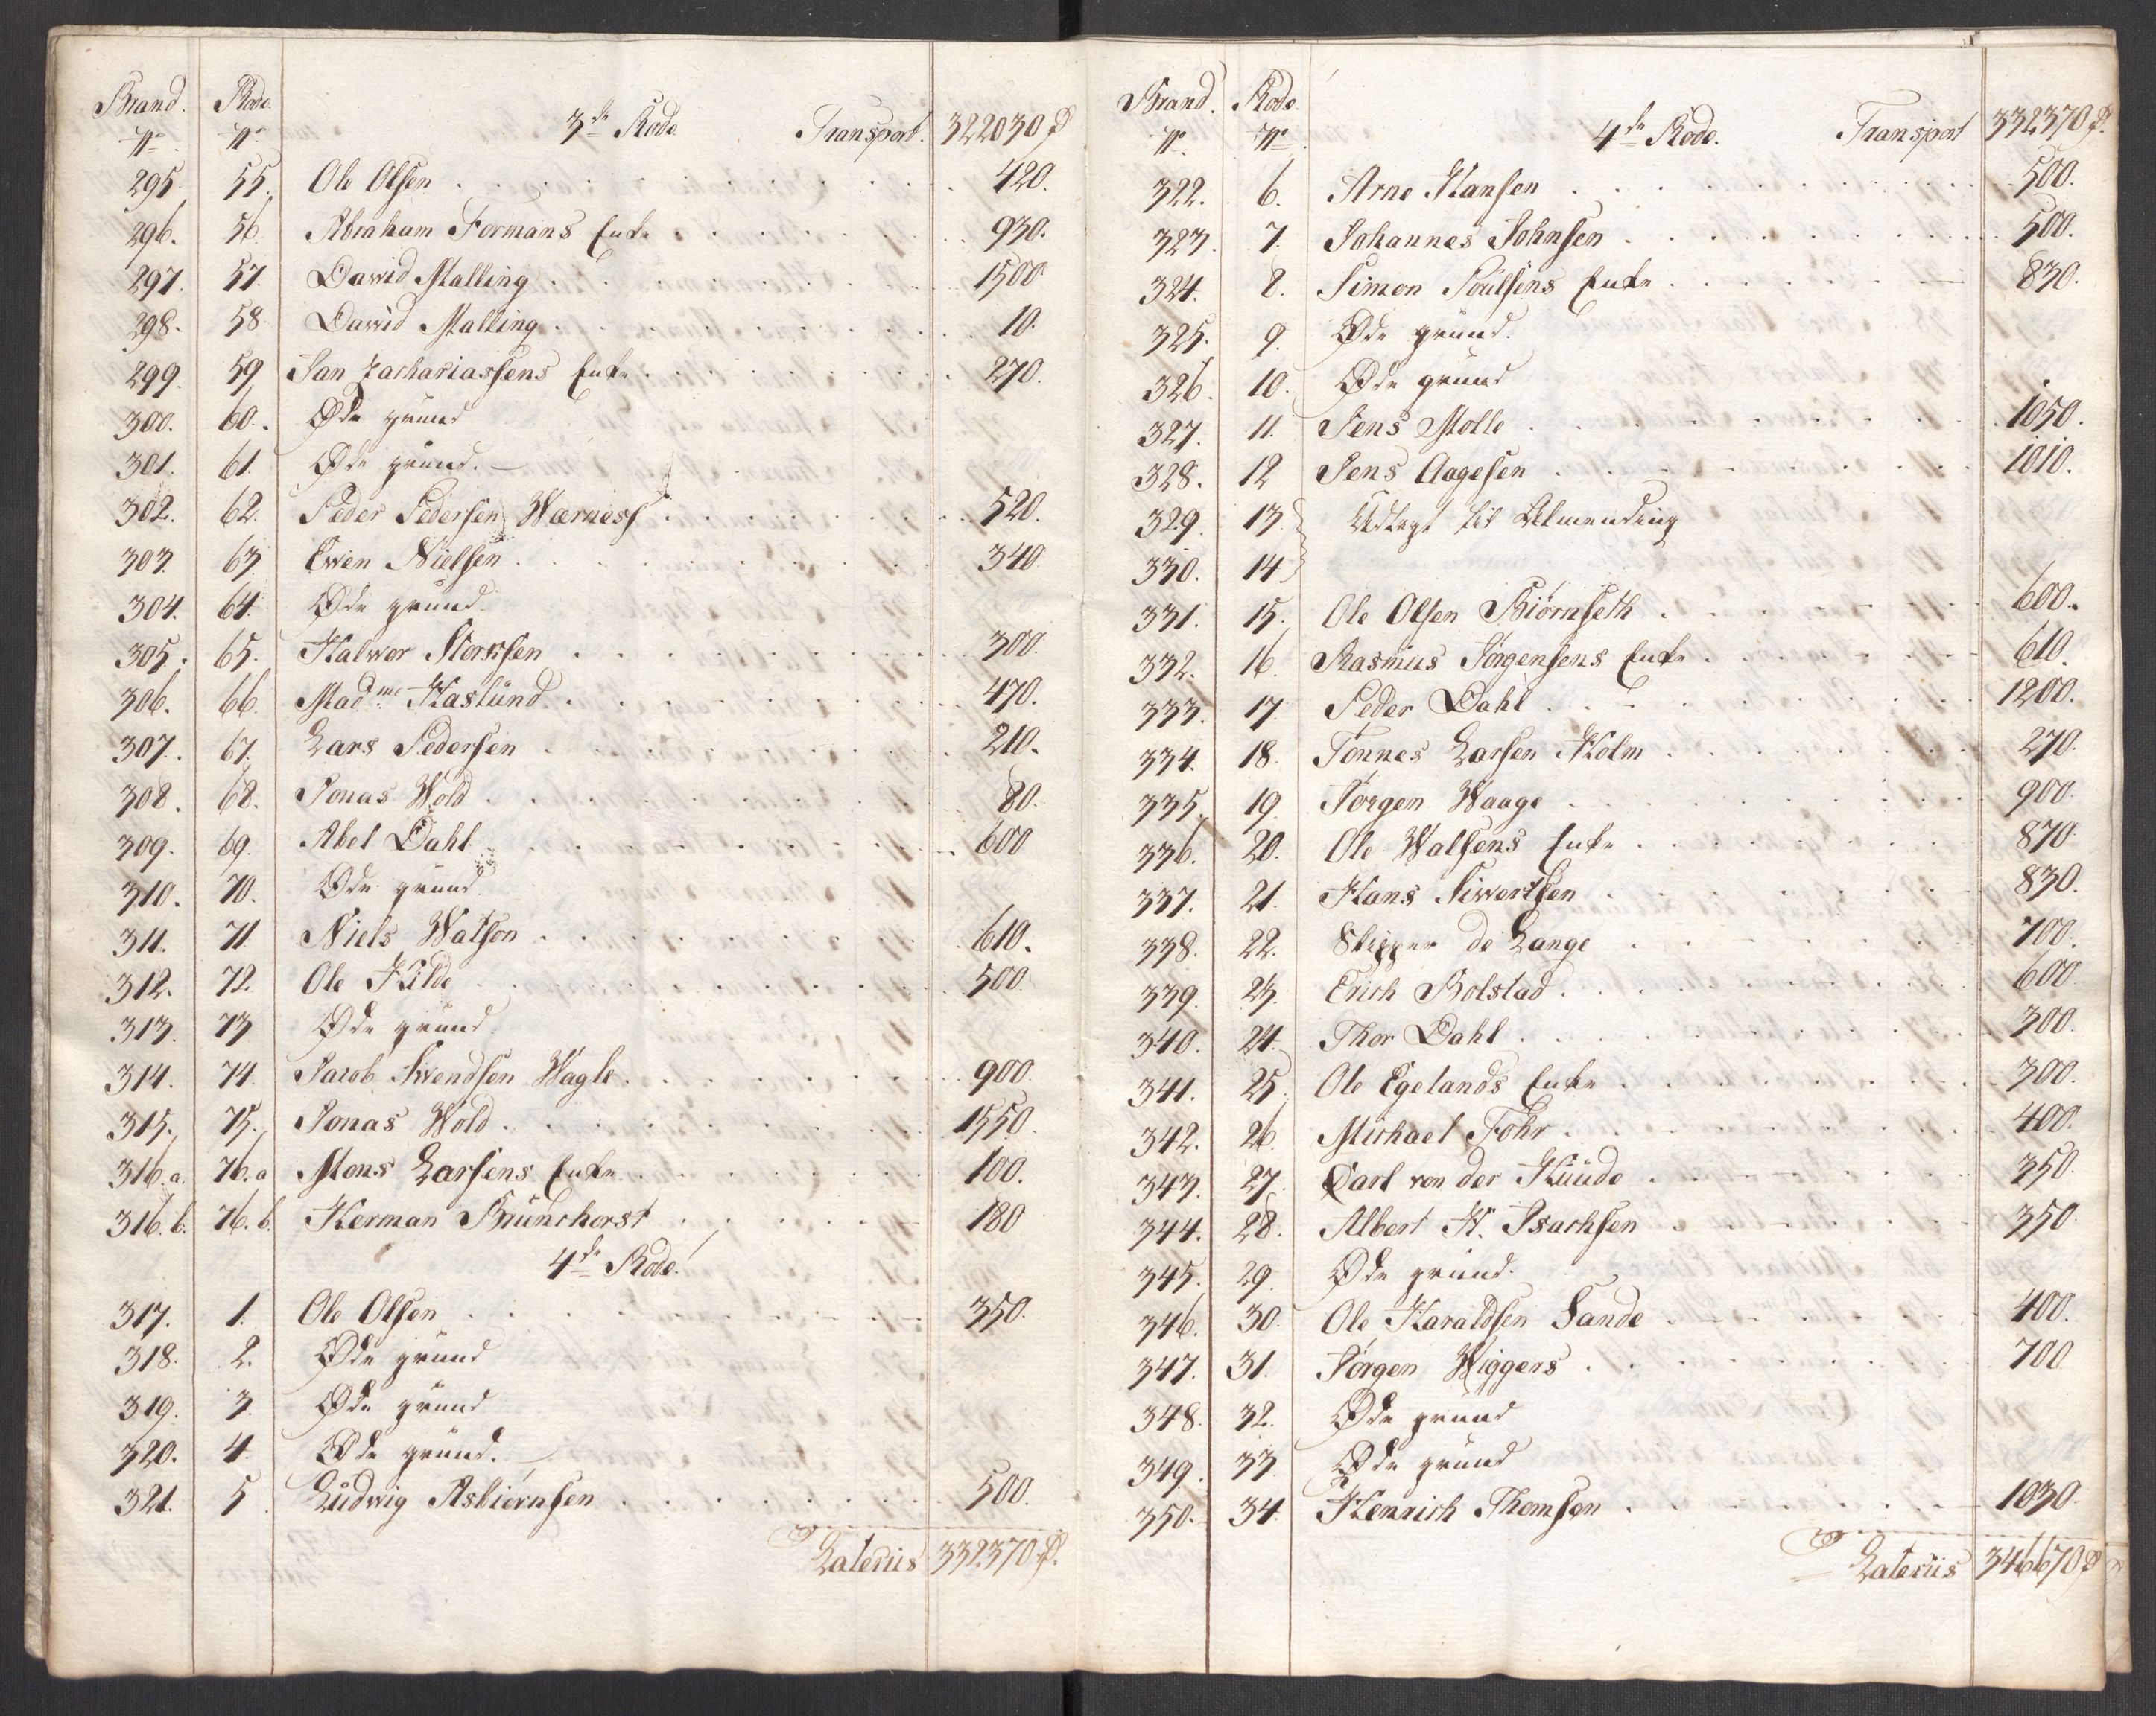 Brand. Rode
No No 3de Rode. Transport. 322030 rd
295 55. Ole Olsen 420.
296. 56 Abraham Formans Enke 930.
297. 57. Dawid Malling 1500
298. 58 Dawid Malling 10.
299. 59 Jan Zachariassens Enke 270.
300. 60. Øde grund
301. 61. Øde grund.
302. 62. Peder Pedersen Wærness 520.
303. 63 Ewen Nielsen 340
304. 64. Øde grund
305. 65. Halwor Storssen 300.
306. 66. Madme Haslund 470.
307. 67. Lars Pedersen 210.
308. 68. Jonas Wold 80.
309. 69. Abel Dahl 600
310. 70. Øde grund.
311. 71 Niels Watson 610.
312. 72. Ole Kilde 500
313. 73 Øde grund
314. 74. Jacob Swendsen Wagle 900
315. 75. Jonas Wold 1550.
316.a. 76.a Mons Larsens Enke 100.
316.b. 76.b. Herman Brunchorst 180
4de Rode.
317. 1. Ole Olsen 350.
318. 2. Øde grund
319. 3. Øde grund
320. 4. Øde grund.
321. 5. Ludwig Asbiørnsen 500.
Laterus 332370 rd.
Brand. Rode
No No 4de Rode. Transport 332370 rd.
322. 6. Arne Hansen 500.
323. 7. Johannes Johnsen 500.
324. 8. Simon Poulsens Enke 830.
325. 9. Øde grund.
326. 10. Øde grund
327. 11. Jens Molle 1050.
328. 12 Jens Aagesen 1010.
329. 13 Udlagt til Allmending
330. 14
331. 15. Ole Olsen Biørnseth 600.
332. 16. Rasmus Jørgensens Enke 610.
333. 17. Peder Dahl 1200.
334. 18. Tønnes Larsen Holm 270.
335. 19. Jørgen Waage 900
336. 20. Ole Walsens Enke 870
337. 21. Hans Siwertsen 830.
338. 22. Skipper de Lange 700.
339. 23. Erich Bolstad 600
340. 24. Thor Dahl 300.
341. 25. Ole Egelands Enke 300.
342. 26 Michael Fohr 400.
343. 27. Carl von der Kuude 350.
344. 28. Albert H. Isachsen 350
345. 29. Øde grund.
346. 30. Ole Haraldsen Sande 400.
347. 31. Jørgen Wiggers 700
348. 32. Øde grund
349. 33 Øde grund
350. 34. Henrich Thomsen 1030.
Laterus 346670 rd